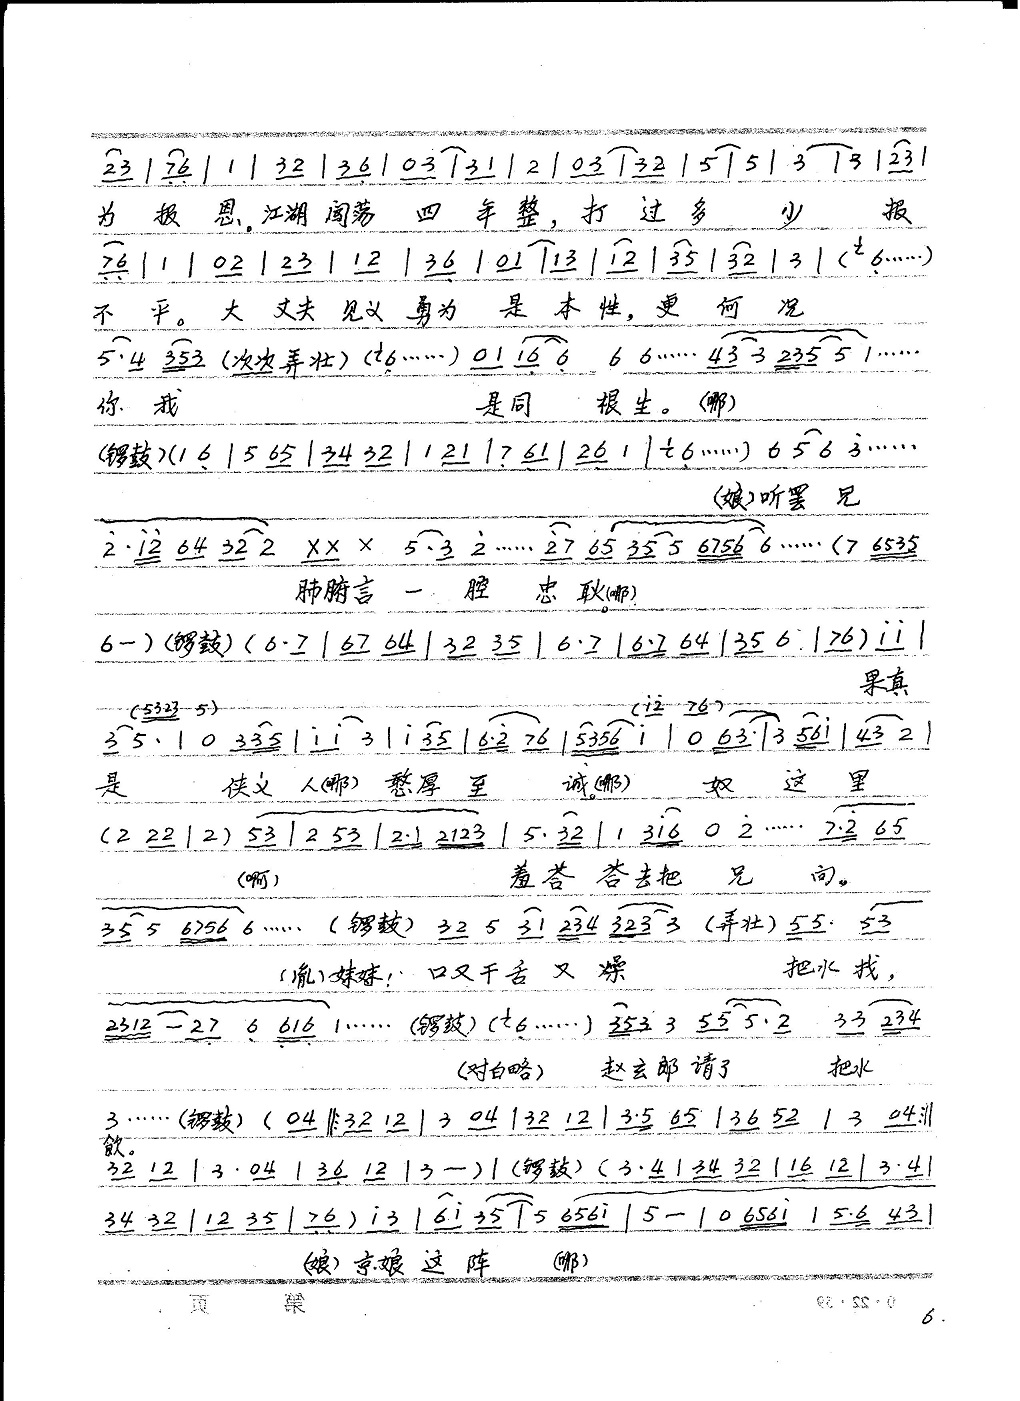 23 | 76 | 1 | 32 | 36 | 03 | 31 | 2 | 03 | 32 | 5 | 5 | 3 | 3 | 23 |
为 报 恩。江湖 闯荡 四 年 整，打 过 多 少 报
76 | 1 | 02 | 23 | 12 | 36 | 01 | 13 | 12 | 35 | 32 | 3 | (サ6……)
不 平。大 丈夫 见义 勇为 是 本 性，更 何 况
5·4 353 (次次弄壮) (サ6……) 01 16 6 6 6…… 43 3 235 5 1……
你 我 是同 根 生。(哪)
(锣鼓)(1 6 | 5 65 | 34 32 | 1 21 | 7 61 | 26 1 | サ6……) 6 5 6 3……
(娘)听罢 兄
2·12 64 32 2 XX X 5·3 2…… 27 65 35 5 6756 6…… (7 6535
肺腑言 一 腔 忠 耿。(哪)
6—) (锣鼓) (6·7 | 67 64 | 32 35 | 6·7 | 6·7 64 | 35 6 | 76) i i |
果真
(5323 5) (i2 76)
3 5· | 0 335 | i i 3 | i 35 | 6·2 76 | 5356 i | 0 63· | 3 56i | 43 2 |
是 侠义 人(哪) 憨厚 至 诚。(哪) 奴 这 里
(2 22 | 2) 53 | 2 53 | 2·1 2123 | 5·32 | 1 316 0 2…… 7·2 65
(啊) 羞答 答去把 兄 问。
35 5 6756 6…… (锣鼓) 32 5 31 234 323 3 (弄壮) 55· 53
(胤)妹妹！口又干舌 又 燥 把水 找，
2312 — 27 6 616 1…… (锣鼓) (サ6……) 353 3 55 5·2 33 234
(对白略) 赵玄郎 请了 把水
3……(锣鼓) ( 04 ‖: 32 12 | 3 04 | 32 12 | 3·5 65 | 36 52 | 3 04 :‖
飲。
32 12 | 3·04 | 36 12 | 3—) | (锣鼓) (3·4 | 34 32 | 16 12 | 3·4 |
34 32 | 12 35 | 76) i3 | 6i 35 | 5 656i | 5— | 0 656i | 5·6 43 |
(娘) 京娘 这 阵 (哪)
第 页
0·22·59
6.